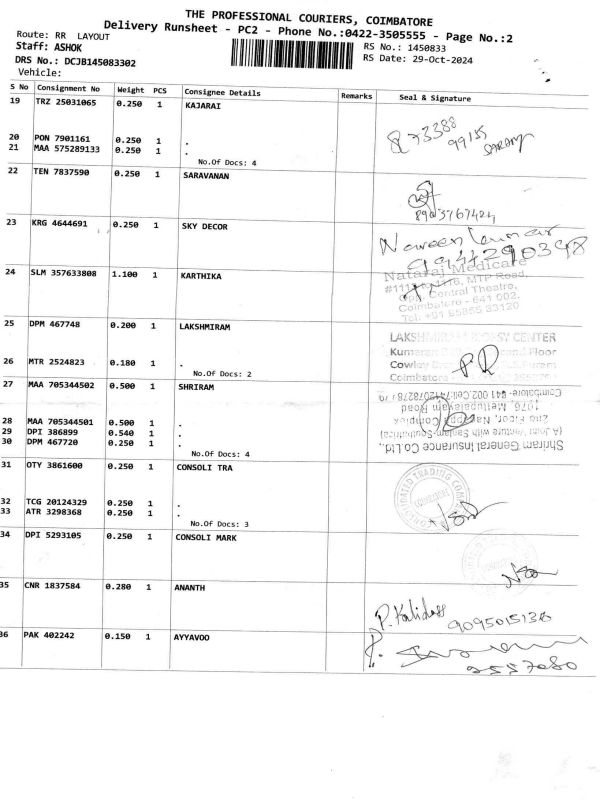 THE PROFESSIONAL COURIERS, COIMBATORE
Delivery Runsheet - PC2 - Phone No.:0422-3505555 - Page No.:2
Route: RR LAYOUT
RS No.: 1450833
Staff: ASHOK
RS Date: 29-Oct-2024
DRS No.: DCJB145083302
Vehicle:
S No Consignment No Weight PCS Consignee Details Remarks Seal & Signature
19 TRZ 25031065 0.250 1 KAJARAI
873388
99155
20 PON 7901161 0.250 1 .
21 MAA 575289133 0.250 1 .
No.Of Docs: 4
22 TEN 7837590 0.250 1 SARAVANAN
23 KRG 4644691 0.250 1 SKY DECOR
Naveen Kumar
9944290398
24 SLM 357633808 1.100 1 KARTHIKA
Nataraj Medicare
MTP Road,
Opp. Central Theatre,
Coimbatore - 641 002.
Tel: +91 65855 33120
25 DPM 467748 0.200 1 LAKSHMIRAM
26 MTR 2524823 0.180 1 .
No.Of Docs: 2
27 MAA 705344502 0.500 1 SHRIRAM
Shriram General Insurance Co.Ltd.,
(A Joint Venture with Sanlam-Southafrica)
2nd Floor, Complex
1076, Mettupalayam Road
28 MAA 705344501 0.500 1 .
29 DPI 386899 0.540 1 .
30 DPM 467720 0.250 1 .
No.Of Docs: 4
31 OTY 3861600 0.250 1 CONSOLI TRA
32 TCG 20124329 0.250 1 .
33 ATR 3298368 0.250 1 .
No.Of Docs: 3
34 DPI 5293105 0.250 1 CONSOLI MARK
35 CNR 1837584 0.280 1 ANANTH
P. Kalidass
9095015136
36 PAK 402242 0.150 1 AYYAVOO